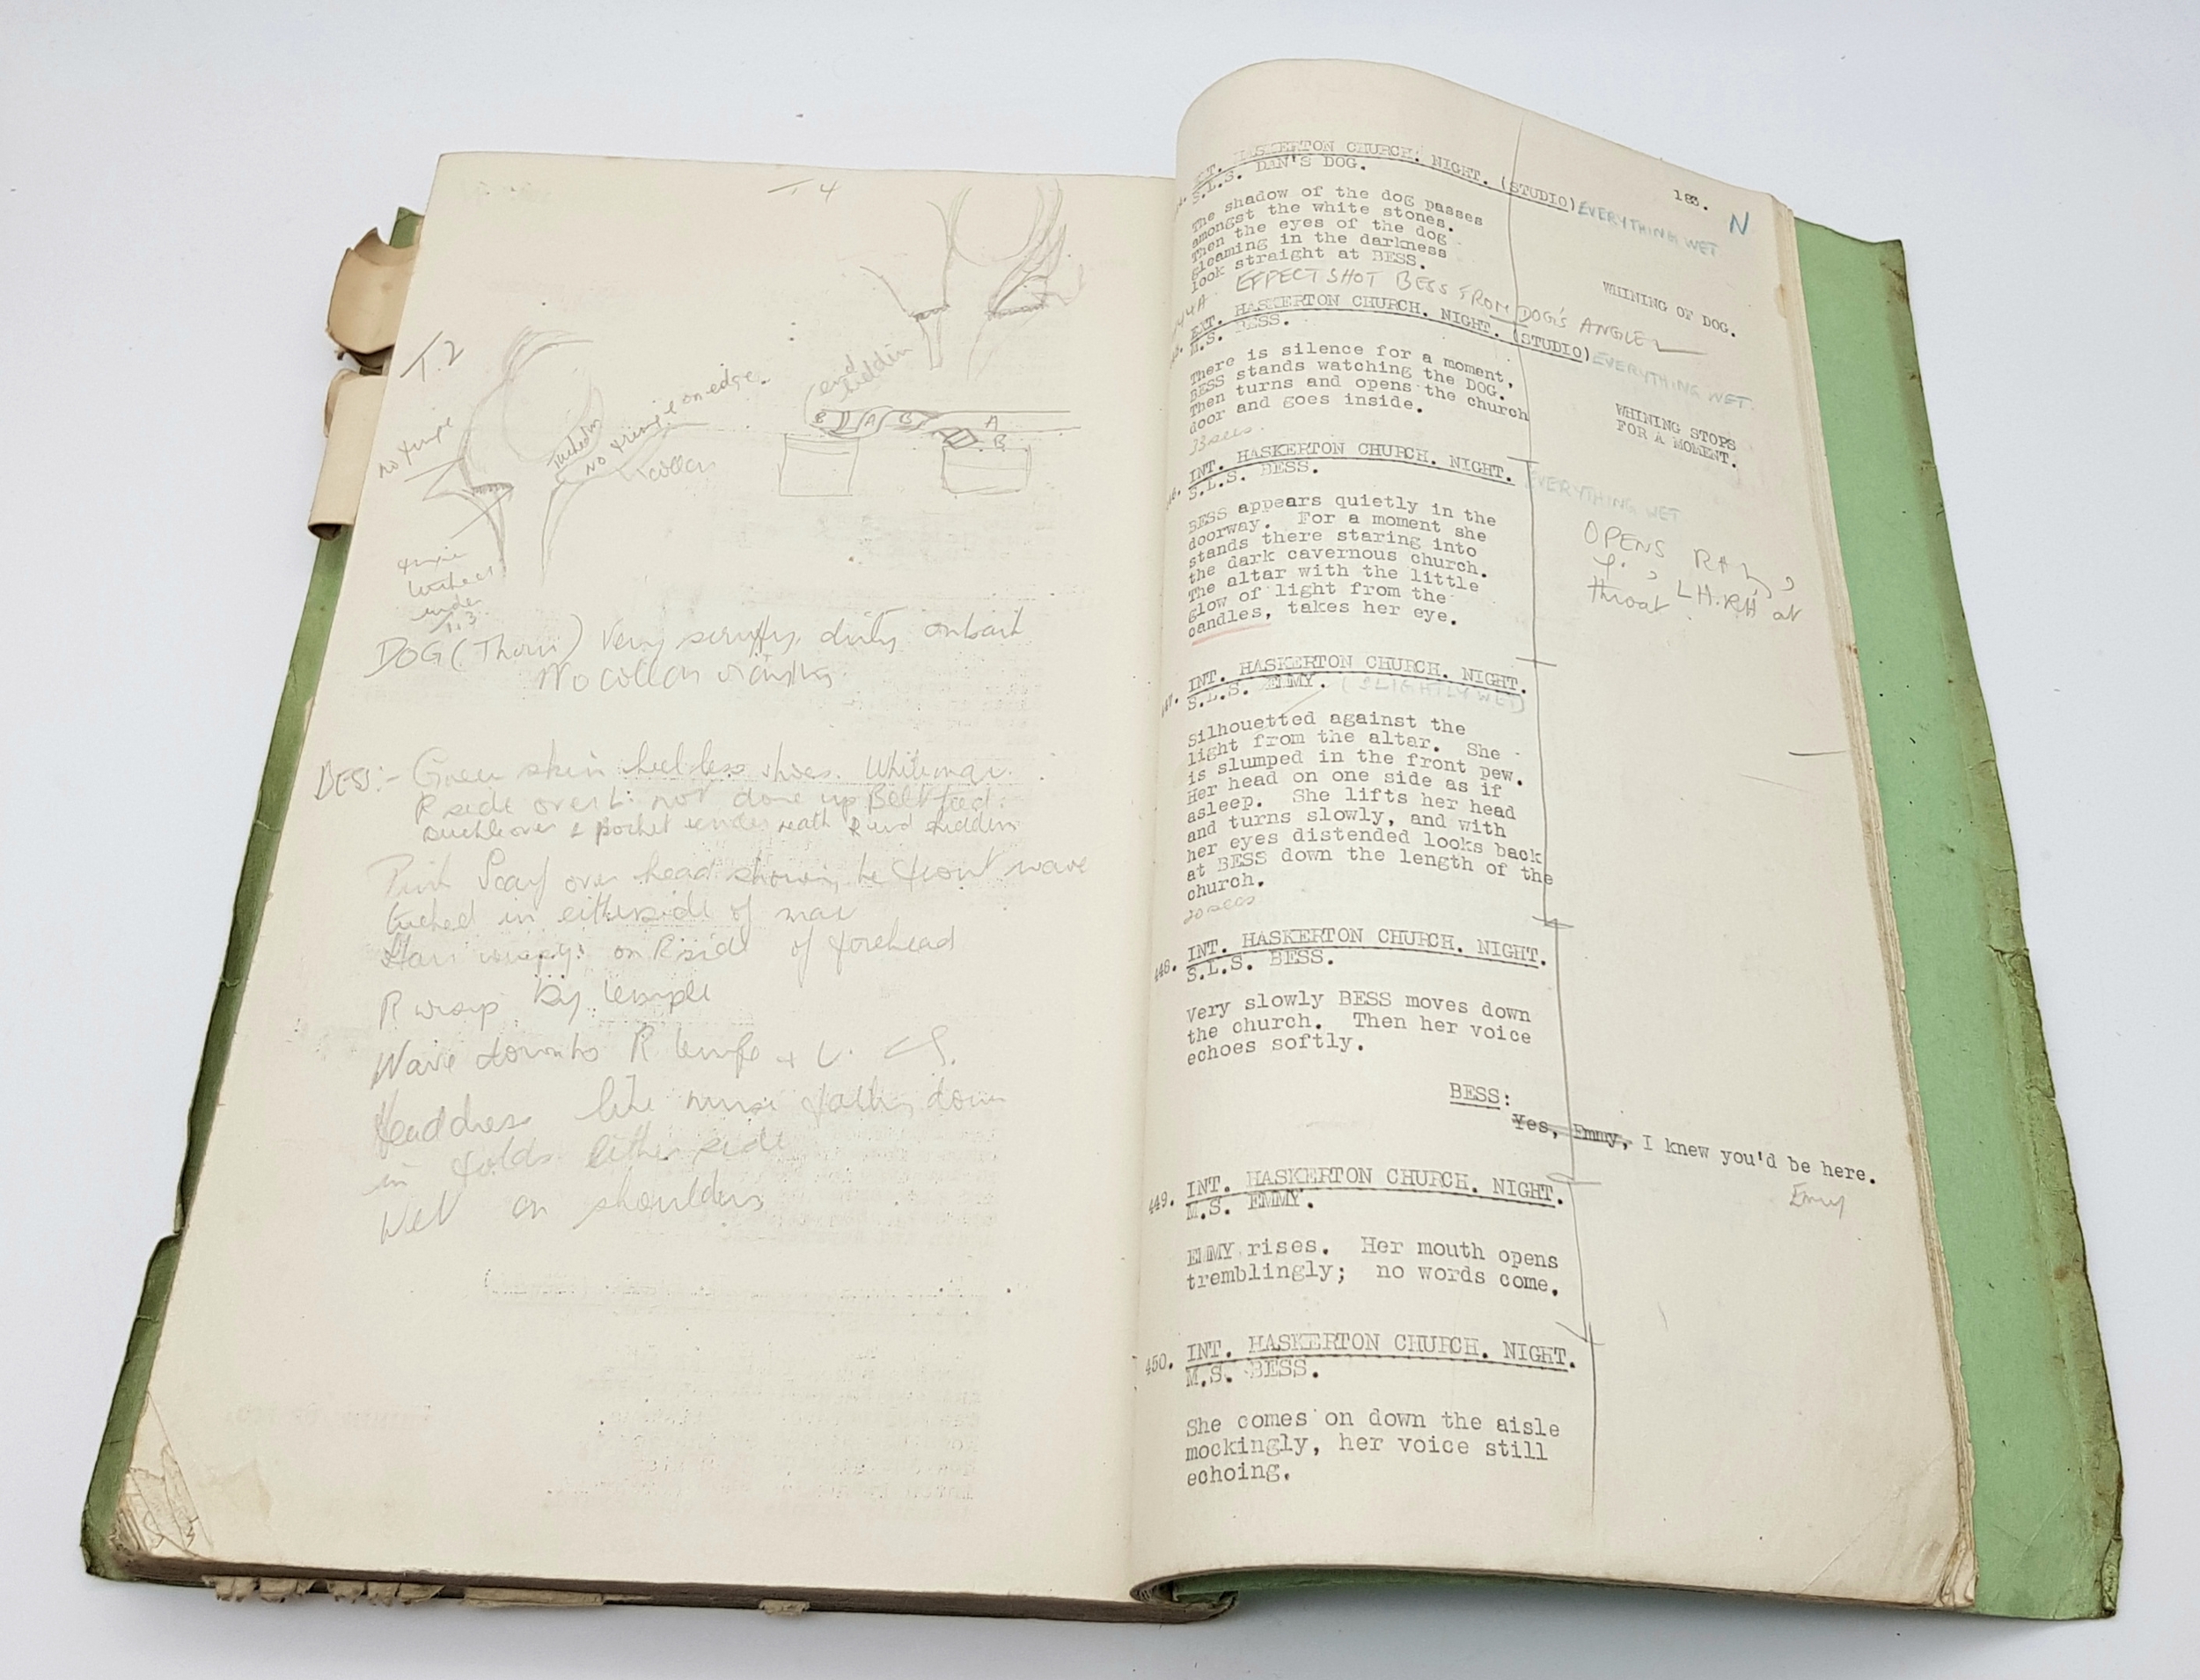 T4
T.2
no fringe
tucked in
no fringe on edge.
collar
end
hidden
B A B A
B
under
T.3.
DOG (Thorn) Very scruffy, dirty on back
No collar
BESS:- Green skin heel less shoes. White mac.
R side over L: not done up Belt tied.
buckle over & pocket underneath R end hidden
Pink Scarf over head showing front wave
tucked in either side of mac
Hair on R side of forehead
R wisp by temple
Wave down to R temple + L.
Headdress like nurse falling down
in folds either side
Wet on shoulders
183.
N
EXT. HASKERTON CHURCH. NIGHT. (STUDIO) EVERYTHING WET
S.L.S. DAN'S DOG.
The shadow of the dog passes
amongst the white stones.
Then the eyes of the dog
gleaming in the darkness
look straight at BESS.
WHINING OF DOG.
444A EFFECT SHOT BESS FROM DOG'S ANGLE
EXT. HASKERTON CHURCH. NIGHT. (STUDIO) EVERYTHING WET.
M.S. BESS.
There is silence for a moment,
BESS stands watching the DOG.
Then turns and opens the church
door and goes inside.
WHINING STOPS
FOR A MOMENT.
33 secs.
INT. HASKERTON CHURCH. NIGHT. EVERYTHING WET
S.L.S. BESS.
BESS appears quietly in the
doorway. For a moment she
stands there staring into
the dark cavernous church.
The altar with the little
glow of light from the
candles, takes her eye.
OPENS
L.H. R.H at
throat
INT. HASKERTON CHURCH. NIGHT.
S.L.S. EMMY. (SLIGHTLY WET)
Silhouetted against the
light from the altar. She
is slumped in the front pew.
Her head on one side as if
asleep. She lifts her head
and turns slowly, and with
her eyes distended looks back
at BESS down the length of the
church.
20 secs
448. INT. HASKERTON CHURCH. NIGHT.
S.L.S. BESS.
Very slowly BESS moves down
the church. Then her voice
echoes softly.
BESS:
Yes, Emmy, I knew you'd be here.
Emmy
449. INT. HASKERTON CHURCH. NIGHT.
M.S. EMMY.
EMMY rises. Her mouth opens
tremblingly; no words come.
450. INT. HASKERTON CHURCH. NIGHT.
M.S. BESS.
She comes on down the aisle
mockingly, her voice still
echoing.